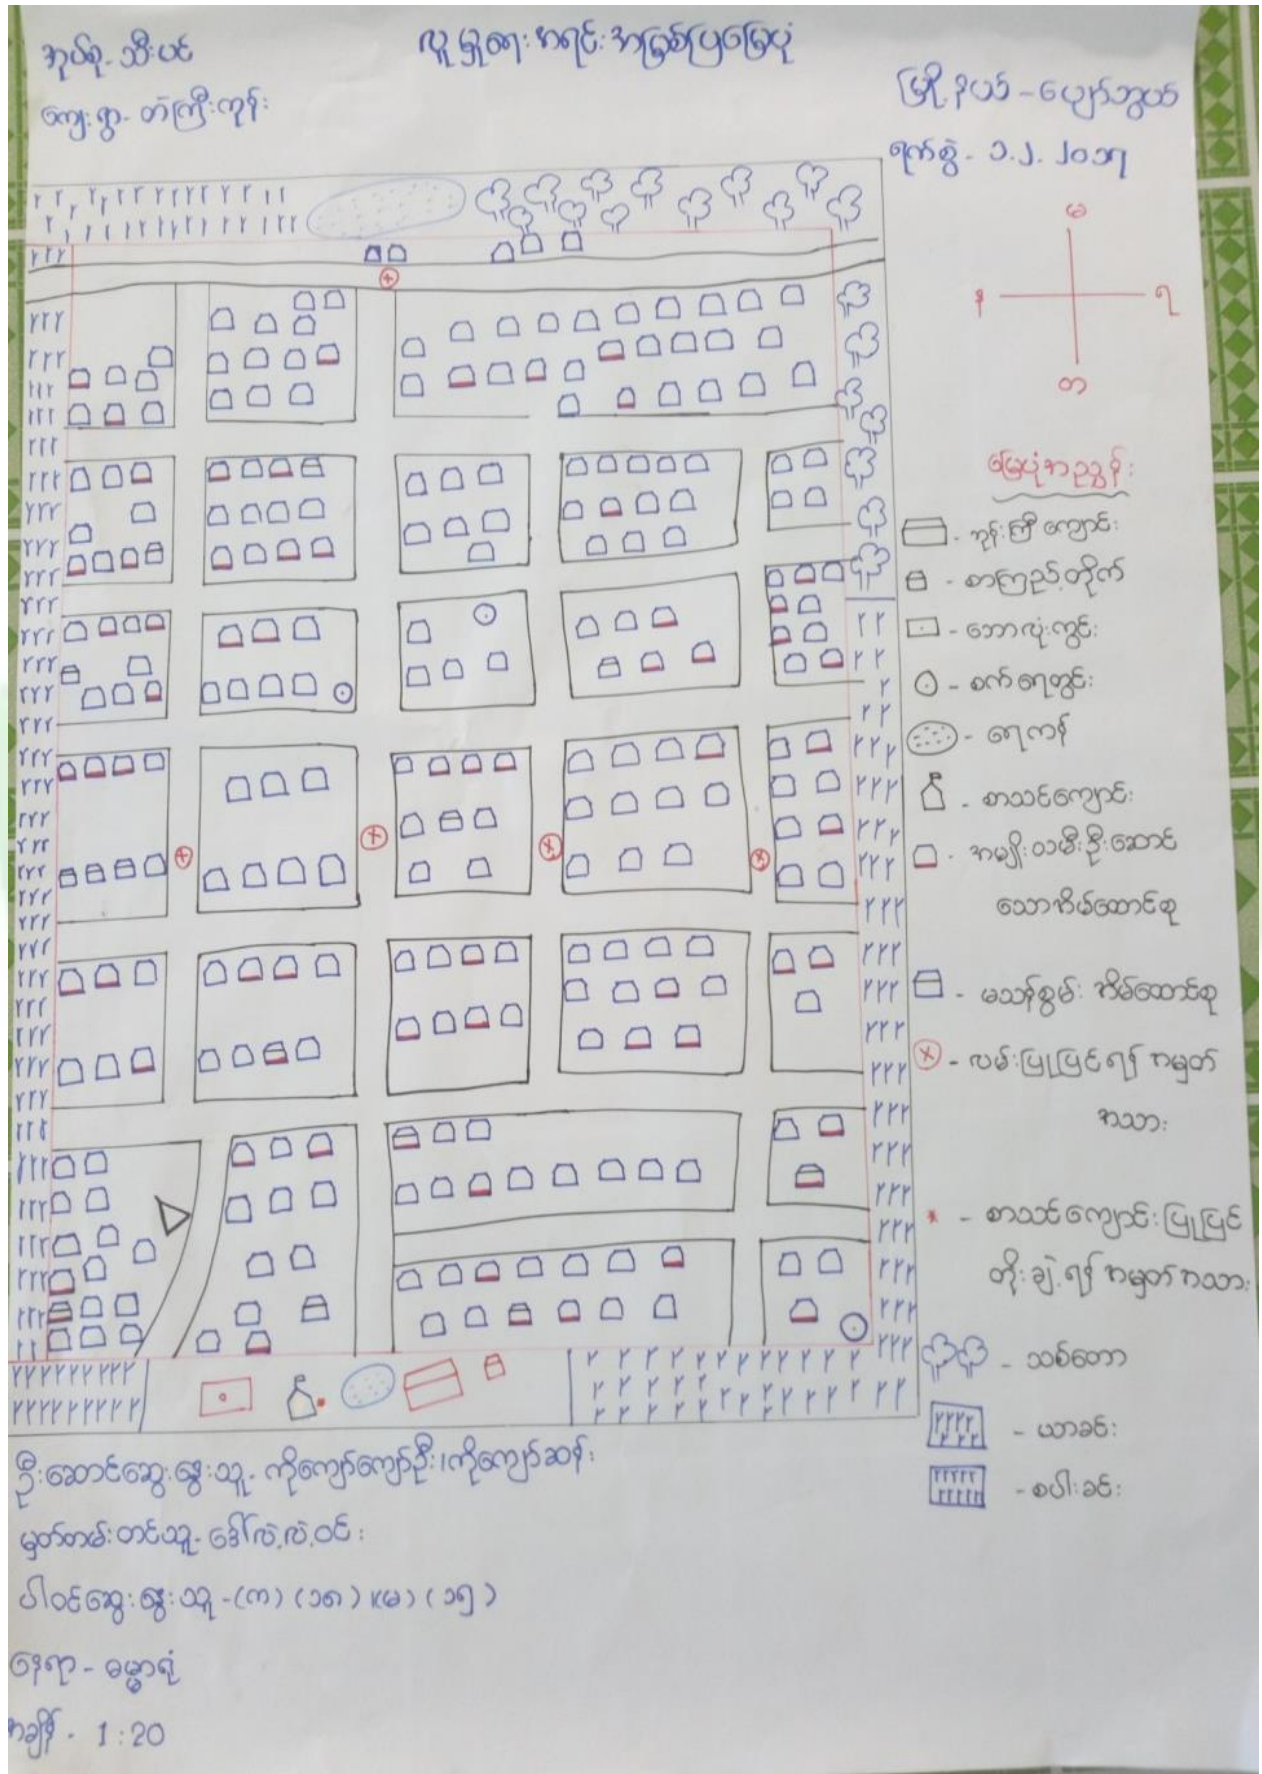 လူမှုရေးအရင်းအမြစ်ပြမြေပုံ
အုပ်စု - သီးပင်
ကျေးရွာ - တံကြီးကုန်း
မြို့နယ် - ပျော်ဘွယ်
ရက်စွဲ - ၁.၂.၂၀၁၇
မ
န
ရ
တ
မြေပုံအညွှန်း
- ဘုန်းကြီးကျောင်း
- စာကြည့်တိုက်
- ဘောလုံးကွင်း
- စက်ရေတွင်း
- ရေကန်
- စာသင်ကျောင်း
- အမျိုးသမီးဦးဆောင်
သောအိမ်ထောင်စု
- မသန်စွမ်းအိမ်ထောင်စု
- လမ်းပြုပြင်ရန်အမှတ်
အသား
- စာသင်ကျောင်းပြုပြင်
တိုးချဲ့ရန်အမှတ်အသား
- သစ်တော
- ယာခင်း
- စပါးခင်း
ဦးဆောင်ဆွေးနွေးသူ - ကိုကျော်ကျော်ဦး၊ ကိုကျော်ဆန်း
မှတ်တမ်းတင်သူ - ဒေါ်လဲ့လဲ့ဝင်း
ပါဝင်ဆွေးနွေးသူ - (က) (၁၈) ၊ (မ) (၁၅)
နေရာ - ဓမ္မာရုံ
အချိန် - 1:20